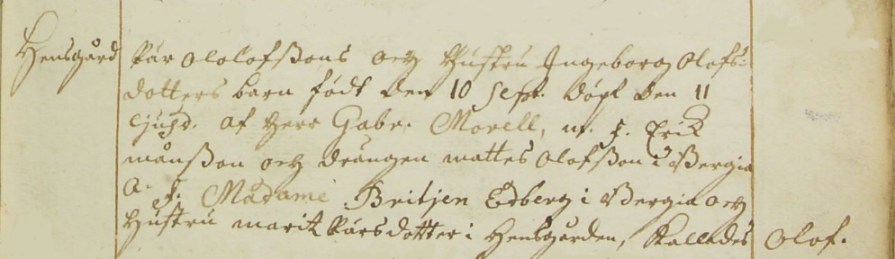 Hensgård Pär Ololofßons och Hustru Ingeborg Olofs=
dotters barn födt den 10 Sept. döpt den 11
ejusd. af Herr Gabr. Morell, m. f. Erik
månßon och drängen mattes Olofßon i Bergia
Q. f. Madame Britjen Edberg i Bergia och
Hustru marit Pärsdotter i Hensgården, kallades Olof.